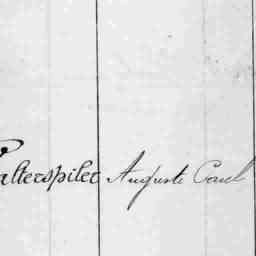 Palterspiler Auguste Carl